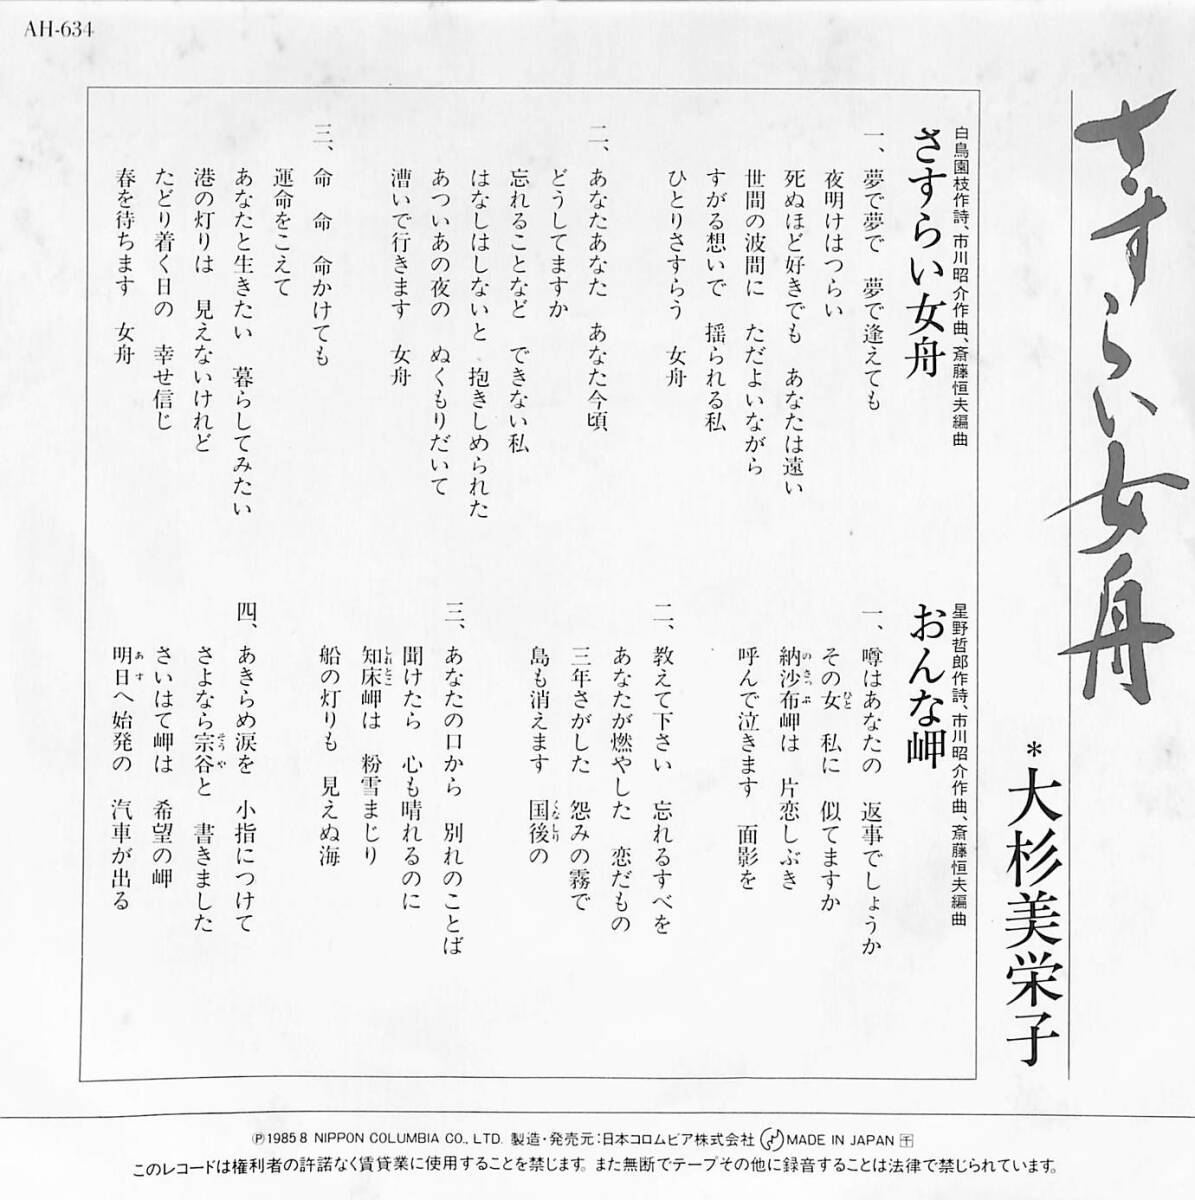 AH-634
さすらい女舟
*大杉美栄子
白鳥園枝作詩、市川昭介作曲、斎藤恒夫編曲
さすらい女舟
一、夢で夢で 夢で逢えても
夜明けはつらい
死ぬほど好きでも あなたは遠い
世間の波間に ただよいながら
すがる想いで 揺られる私
ひとりさすらう 女舟
二、あなたあなた あなた今頃、
どうしてますか
忘れることなど できない私
はなしはしないと 抱きしめられた
あついあの夜の ぬくもりだいて
漕いで行きます 女舟
三、命 命 命かけても
運命をこえて
あなたと生きたい 暮らしてみたい
港の灯りは 見えないけれど
たどり着く日の 幸せ信じ
春を待ちます 女舟
星野哲郎作詩、市川昭介作曲、斎藤恒夫編曲
おんな岬
一、噂はあなたの 返事でしょうか
その女(ひと) 私に 似てますか
納沙布(のさっぷ)岬は 片恋しぶき
呼んで泣きます 面影を
二、教えて下さい 忘れるすべを
あなたが燃やした 恋だもの
三年さがした 怨みの霧で
島も消えます 国後(くなしり)の
三、あなたの口から 別れのことば
聞けたら 心も晴れるのに
知床(しれとこ)岬は 粉雪まじり
船の灯りも 見えぬ海
四、あきらめ涙を 小指につけて
さよなら宗谷(そうや)と 書きました
さいはて岬は 希望の岬
明日(あす)へ始発の 汽車が出る
Ⓟ1985 8 NIPPON COLUMBIA CO., LTD. 製造・発売元:日本コロムビア株式会社 MADE IN JAPAN
このレコードは権利者の許諾なく賃貸業に使用することを禁じます。また無断でテープその他に録音することは法律で禁じられています。